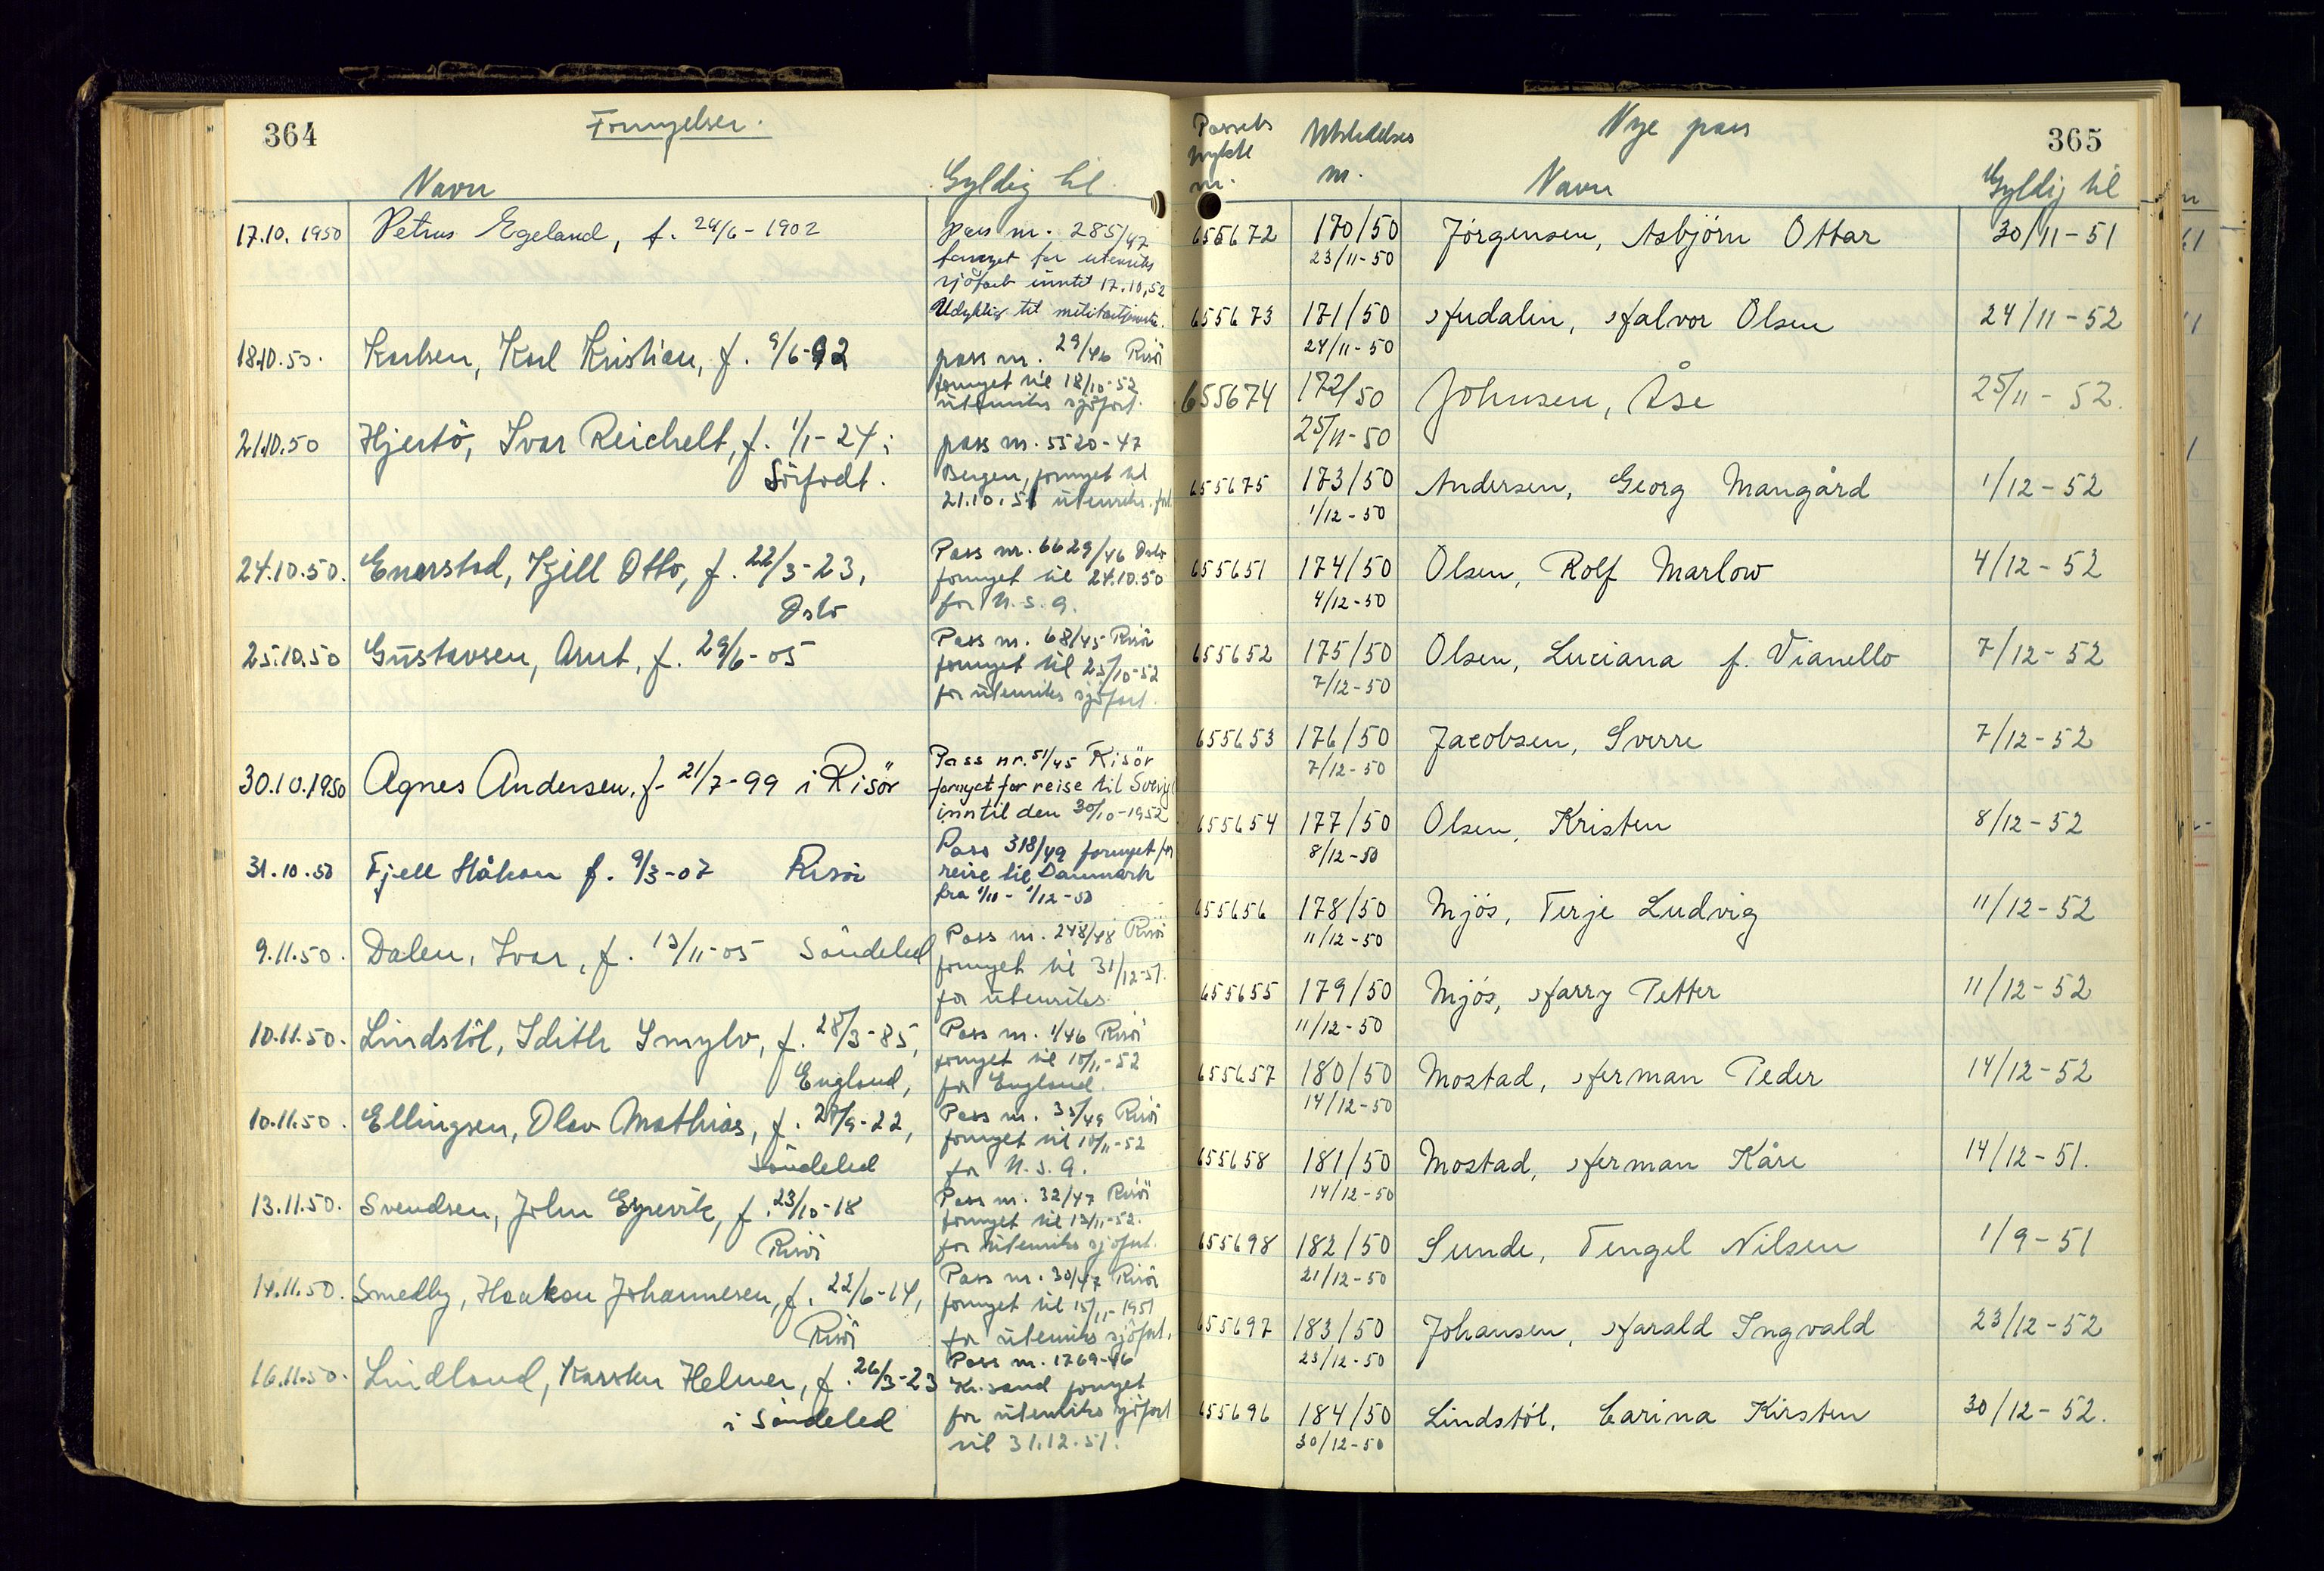 364
Fornyelser.
Navn
Gyldig til
17.10.1950 Petrus Egeland, f. 24/6-1902
Pass nr. 285/47
fornyet for utenriks
sjöfart inntil 17.10.52
Udyktig til militærtjeneste.
18.10.50. Karlsen, Karl Kristian, f. 9/6-92
pass nr. 29/46 Risör
fornyet til 18/10-52
utenriks sjöfart.
21.10.50 Hjertö, Ivar Reichelt, f. 1/1-24 i
Sörfodt.
pass nr. 5520-47
Bergen, fornyet til
21.10.51 utenriks. fart
24.10.50. Enerstad, Kjell Otto, f. 22/3-23,
Oslo
Pass nr. 6629/46 Oslo
fornyet til 24.10.50
for U.S.A.
25.10.50 Gustavsen, Arnt, f. 29/6-05
Pass nr. 68/45 Risör
fornyet til 25/10-52
for utenriks sjöfart.
30.10.1950 Agnes Andersen, f. 21/7-99 i Risör
Pass nr. 51/45 Risör
fornyet for reise til Sverige
inntil den 30/10-1952
31.10.50 Fjell Håkon f. 9/3-07 Risör
Pass 318/49 fornyet for
reise til Danmark
fra 1/11 - 1/12-50
9.11.50. Dalen, Ivar, f. 13/11-05 Söndeled
Pass nr. 248/48 Risör
fornyet til 31/12-51.
for utenriks
10.11.50. Lindstöl, Idith Smylv, f. 28/3-85,
England,
Pass nr. 1/46 Risör
fornyet til 10/11-52
for England.
10.11.50. Ellingsen, Olav Mathias, f. 28/9-22,
Söndeled
Pass nr. 33/49 Risör
fornyet til 10/11-52
for U.S.A.
13.11.50. Svendsen, John Erpevik, f. 23/10-18
Risör
Pass nr. 32/47 Risör
fornyet til 13/11-52.
for utenriks sjöfart.
14.11.50. Smedby, Haakon Johannesen, f. 22/6-14,
Risör
Pass nr. 30/47 Risör
fornyet til 15/11-1951
for utenriks sjöfart.
16.11.50. Lindland, Karsten Helmer, f. 26/3-23
i Söndeled
Pass nr. 1769-46
Kr.sand fornyet
for utenriks sjöfart
til 31.12.51.
365
Nye pass
Passets
trykte
nr.
Utstedelses
nr.
Navn
Gyldig til
655672 170/50 Jörgensen, Asbjörn Ottar 30/11-51
23/11-50
655673 171/50 Hudalen, Halvor Olsen 24/11-52
24/11-50
655674 172/50 Johnsen, Åse 25/11-52.
25/11-50
655675 173/50 Andersen, Georg Mangård 1/12-52
1/12-50
655651 174/50 Olsen, Rolf Marlow 4/12-52
4/12-50
655652 175/50 Olsen, Luciana f. Vianello 7/12-52
7/12-50
655653 176/50 Jacobsen, Sverre 7/12-52
7/12-50
655654 177/50 Olsen, Kristen 8/12-52
8/12-50
655656 178/50 Mjös, Terje Ludvig 11/12-52
11/12-50
655655 179/50 Mjös, Harry Petter 11/12-52
11/12-50
655657 180/50 Mostad, Herman Peder 14/12-52
14/12-50
655658 181/50 Mostad, Herman Kåre 14/12-51.
14/12-50
655698 182/50 Sunde, Tengel Nilsen 1/9-51
21/12-50
655697 183/50 Johansen, Harald Ingvald 23/12-52
23/12-50
655696 184/50 Lindstöl, Carina Kirsten 30/12-52.
30/12-50